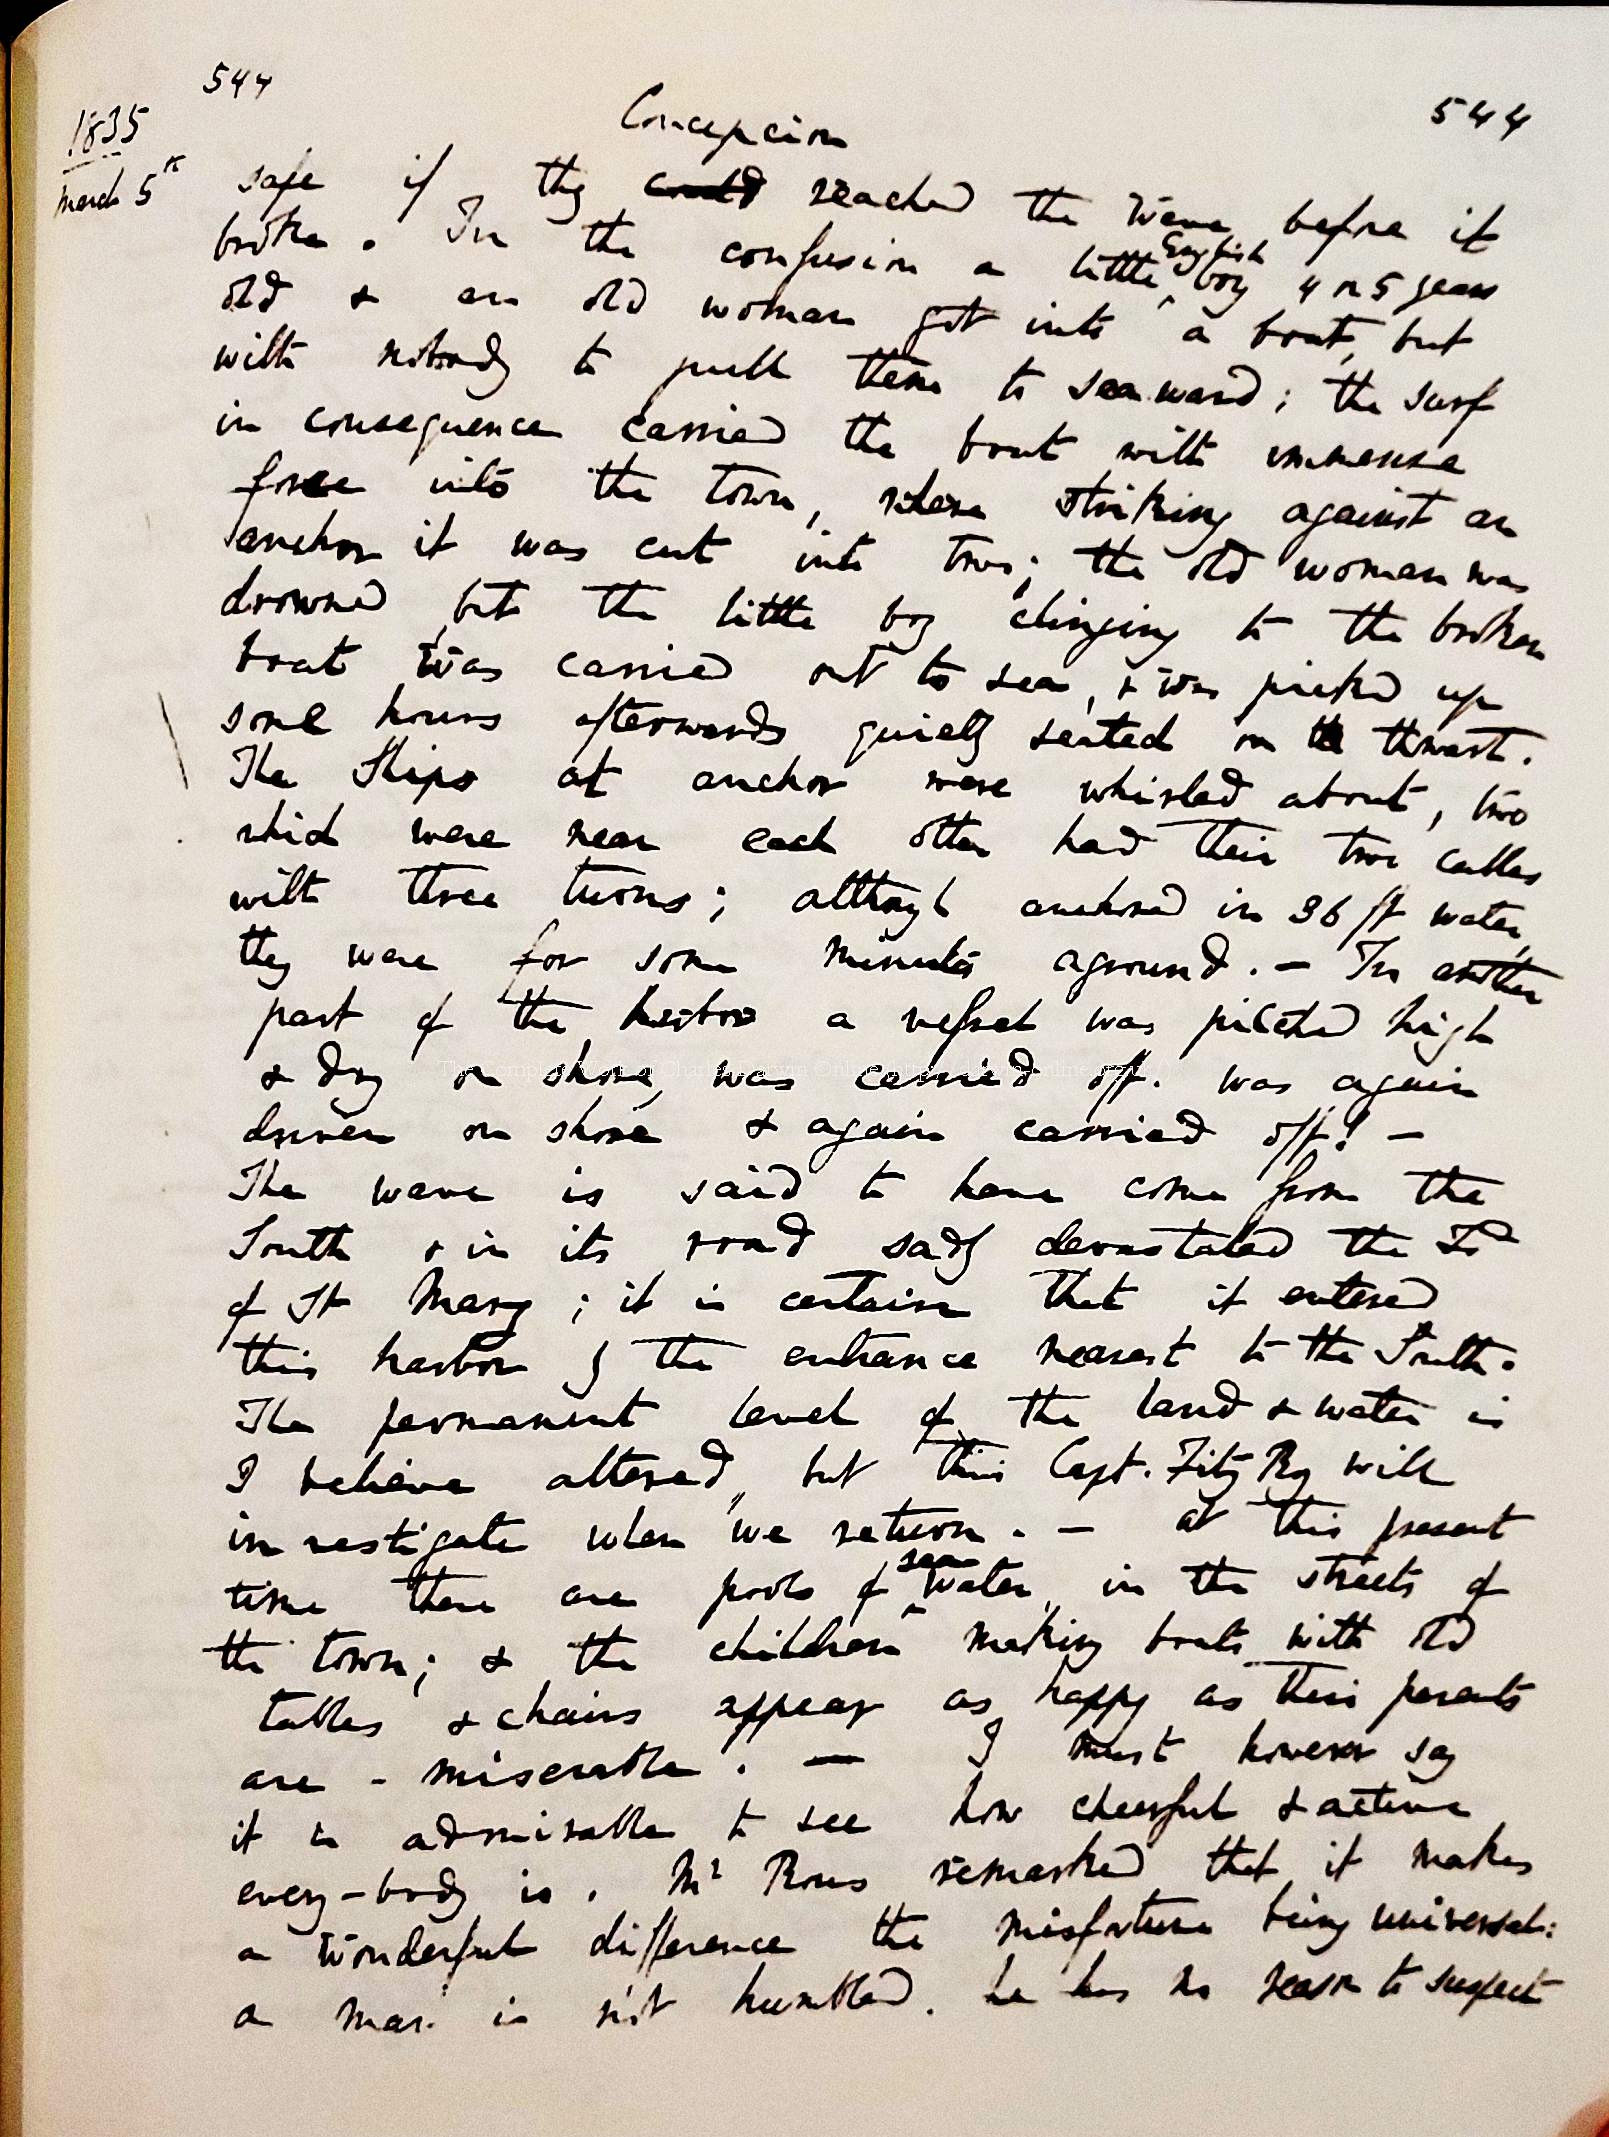 544
544
1835
March 5th
Concepcion
safe if they could reached the wave before it
broke. In the confusion a little English boy 4 or 5 years
old & an old woman got into a boat, but
with nobody to pull them to seaward; the surf
in consequence carried the boat with immense
force into the town, where striking against an
anchor it was cut into two; the old woman was
drowned, but the little boy clinging to the broken
boat was carried out to sea, & was picked up
some hours afterwards quietly seated on the thwart.
The Ships at anchor were whirled about, two
which were near each other had their two cables
with three turns; although anchored in 36 ft water,
they were for some minutes aground. — In another
part of the harbor a vessel was pitched high
& dry on shore, was carried off. was again
driven on shore & again carried off! —
The wave is said to have come from the
South & in its road sadly devastated the Isd
of St Mary; it is certain that it entered
this harbor by the entrance nearest to the South.
The permanent level of the land & water is
I believe altered, but this Capt. FitzRoy will
investigate when we return. — at this present
time there are pools of sea water in the streets of
the town; & the children making boats with old
tables & chairs appear as happy as their parents
are - miserable. — I must however say
it is admirable to see how cheerful & active
every-body is. Mr Rous remarked that it makes
a wonderful difference the misfortune being universal:
a man is not humbled. he has no reason to suspect